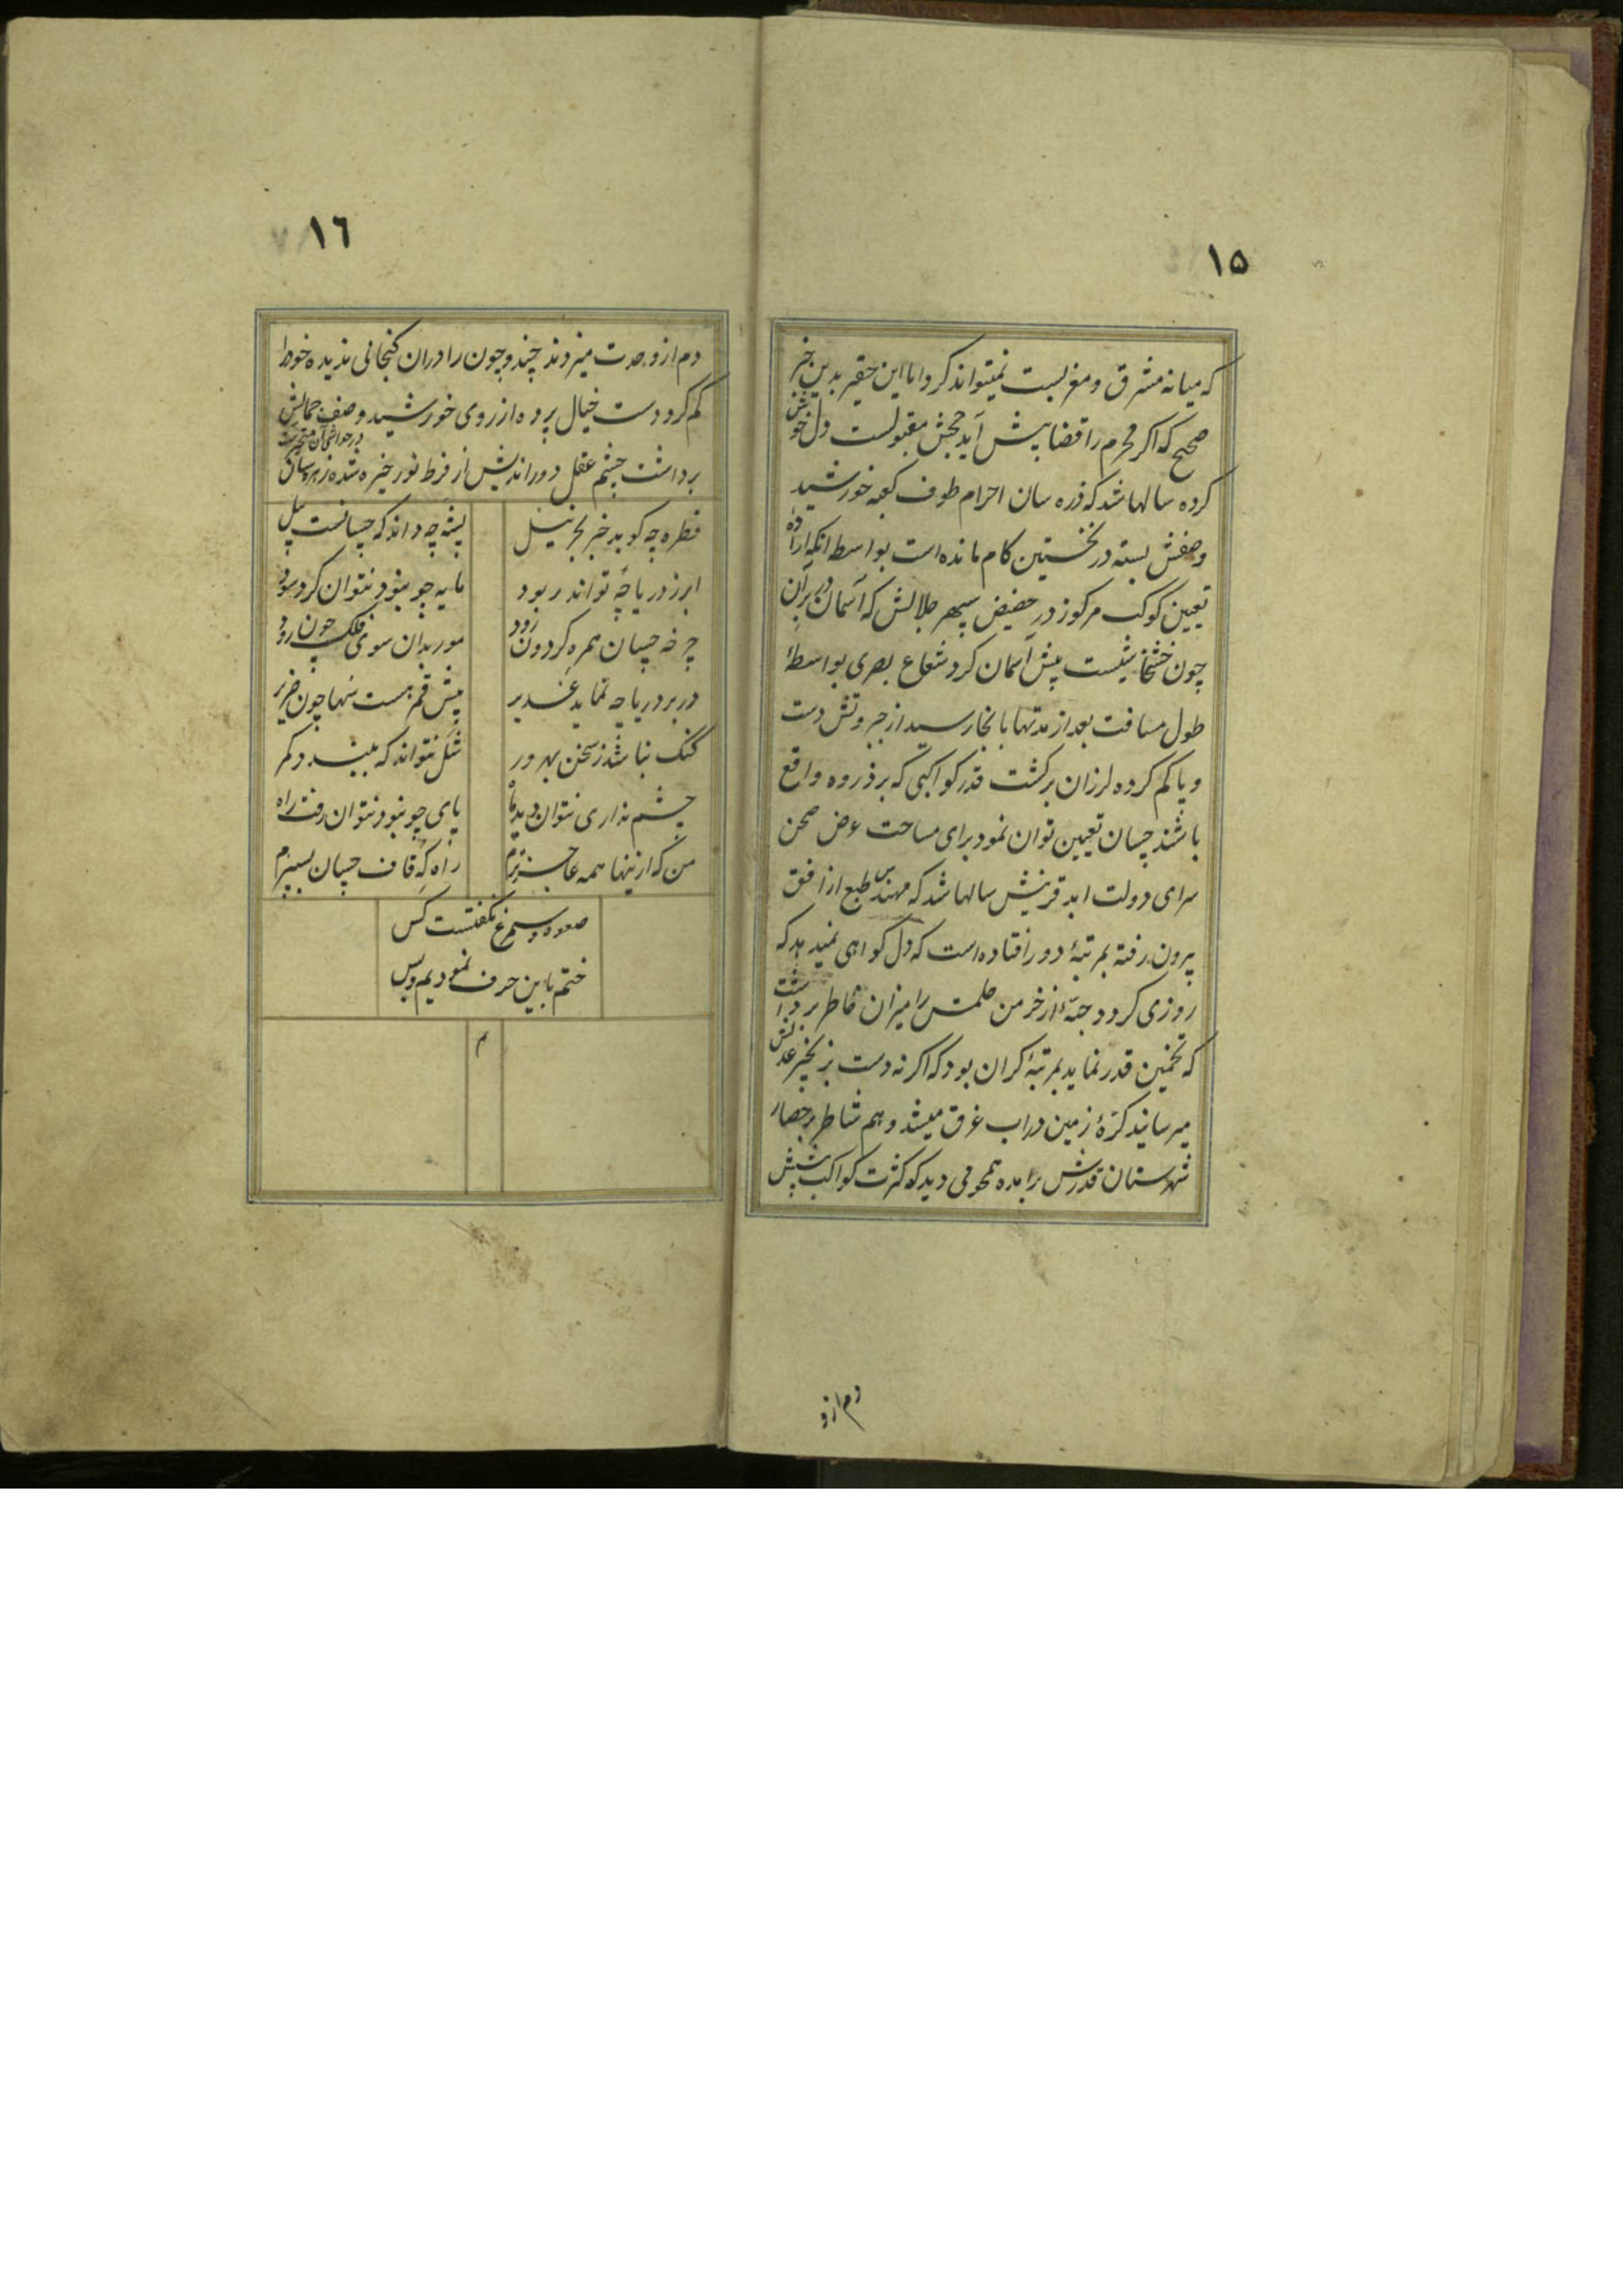 ١٥
که میانه مشرق و مغربست نمیتواند کرد اما این حقیر بدین خبر
صحیح که اکر محرم را قضا پیش آید حجش مقبولست دل خوش
کرده سالها شد که ذره سان احرام طوف کعبه خورشید
وصفش بسته در نخستین کام مانده است بواسطه انکه اراده
تعیین کوکب مرکوز در حضیض سپهر جلالش که آسمان در بر آن
چون خشخاشیست پیش آسمان کرد شعاع بصری بواسطهٔ
طول مسافت بعد از مدتها بانجا رسید از جبروتش دست
و پا کم کرده لرزان برکشت قدر کواکبی که بر ذروه واقع
باشند چسان تعیین توان نمود برای مساحت عرض صحن
سرای دولت ابد قرینش سالها شد که مهندس طبع از افق
بیرون رفته بمرتبهٔ دور افتاده است که دل کواهی نمیدهد که
روزی کردد حبّهٔ از خرمن حلمش را میزان خاطر برداشت
که تخمین قدر نماید بمرتبهٔ کران بود که اکر نه دست بزنجیر عدلش
میرسانید کرّهٔ زمین در اب غرق میشد وهم شاطر بر حصار
شهرستان قدرش برامده همجومی دید که کثرت کواکب پیشش
دم از و
١٦
دم از وحدت میزدند چند و چون را دران کنجانی ندیده خود را
کم کرد دست خیال پرده از روی خورشید وصف جمالش
برداشت چشم عقل دوراندیش از فرط نور خیره شده زهره سان
در حواشی آن متحیر
قطره چه کوید خبر بحر نیل
پشه چه داند که چسانست پیل
ابر ز دریا چه تواند ربود
مایه چو نبود نتوان کرد سود
چرخه چسان همره کردون رود
مور بدان سوی فلک چون رود
در بر دریا چه نماید غدیر
پیش قمر هست سها چون ضریر
کنک نباشد ز سخن بهره ور
شل نتواند که ببندد کمر
چشم نداری نتوان دید ماه
پای چو نبود نتوان رفت راه
من که ازینها همه عاجزترم
راه که قاف چسان بسپرم
صعوه و سیمرغ نکفتست کس
ختم باین حرف نمودیم و بس
م